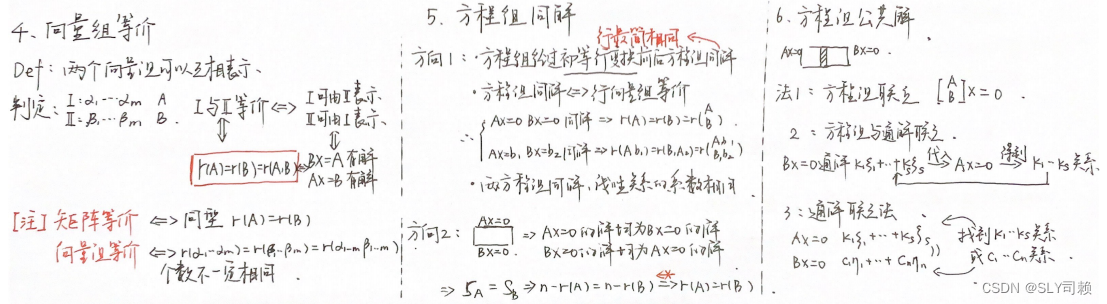 4、向量组等价
Def：两个向量组可以互相表示、
判定：I：α₁…αm A
II：β₁…βm B.
I与II等价⇔I可由II表示、
II可由I表示、
r(A)=r(B)=r(A,B)⇔BX=A有解
AX=B有解
[注]矩阵等价⇔同型 r(A)=r(B)
向量组等价⇔r(α₁…αm)=r(β₁…βm)=r(α₁…m β₁…m)
个数不一定相同
5、方程组同解
行最简相同
方向1：方程组经过初等行变换前后方程组同解
·方程组同解⇔行向量组等价
∴ AX=0 BX=0 同解⇒r(A)=r(B)=r(A B)
AX=b₁ BX=b₂同解⇒r(A b₁)=r(B,b₂)=r(A b₁ B b₂)
·两方程组同解，线性关系的系数相同
方向2：AX=0 BX=0 ⇒ AX=0的解均为BX=0的解
BX=0的解均为AX=0的解
⇒ SA=SB⇒n-r(A)=n-r(B)⇒r(A)=r(B).
6、方程组公共解
AX=0 BX=0.
法1：方程组联立 [A B]X=0.
2：方程组与通解联立.
BX=0通解 k₁ξ₁+…+ksξs 代入 AX=0 得到 k₁…ks关系.
3：通解联立法
AX=0 k₁ξ₁+…+ksξs
BX=0 c₁η₁+…+cnηn
找到k₁…ks关系
或c₁…cn关系.
CSDN @SLY司赖